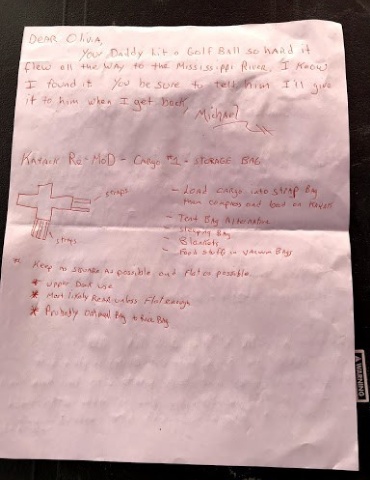 Dear Olivia,
Your Daddy hit a Golf Ball so hard it
flew all the way to the Mississippi River, I know
I found it. You be sure to tell him I'll give
it to him when I get back,
Michael
Kayack Re-Mod - Cargo #1 - Storage Bag
straps
straps
- Load cargo into strap bag
then compress and load on Kayack
- Tent Bag Alternative
- Sleeping Bag
- Blankets
- Food stuff in vacuum Bags
* Keep as as possible and flat as possible.
* upper Deck use
* Most likely Rear unless Flat enough
* Probably Bag to Back Bag
WARNING